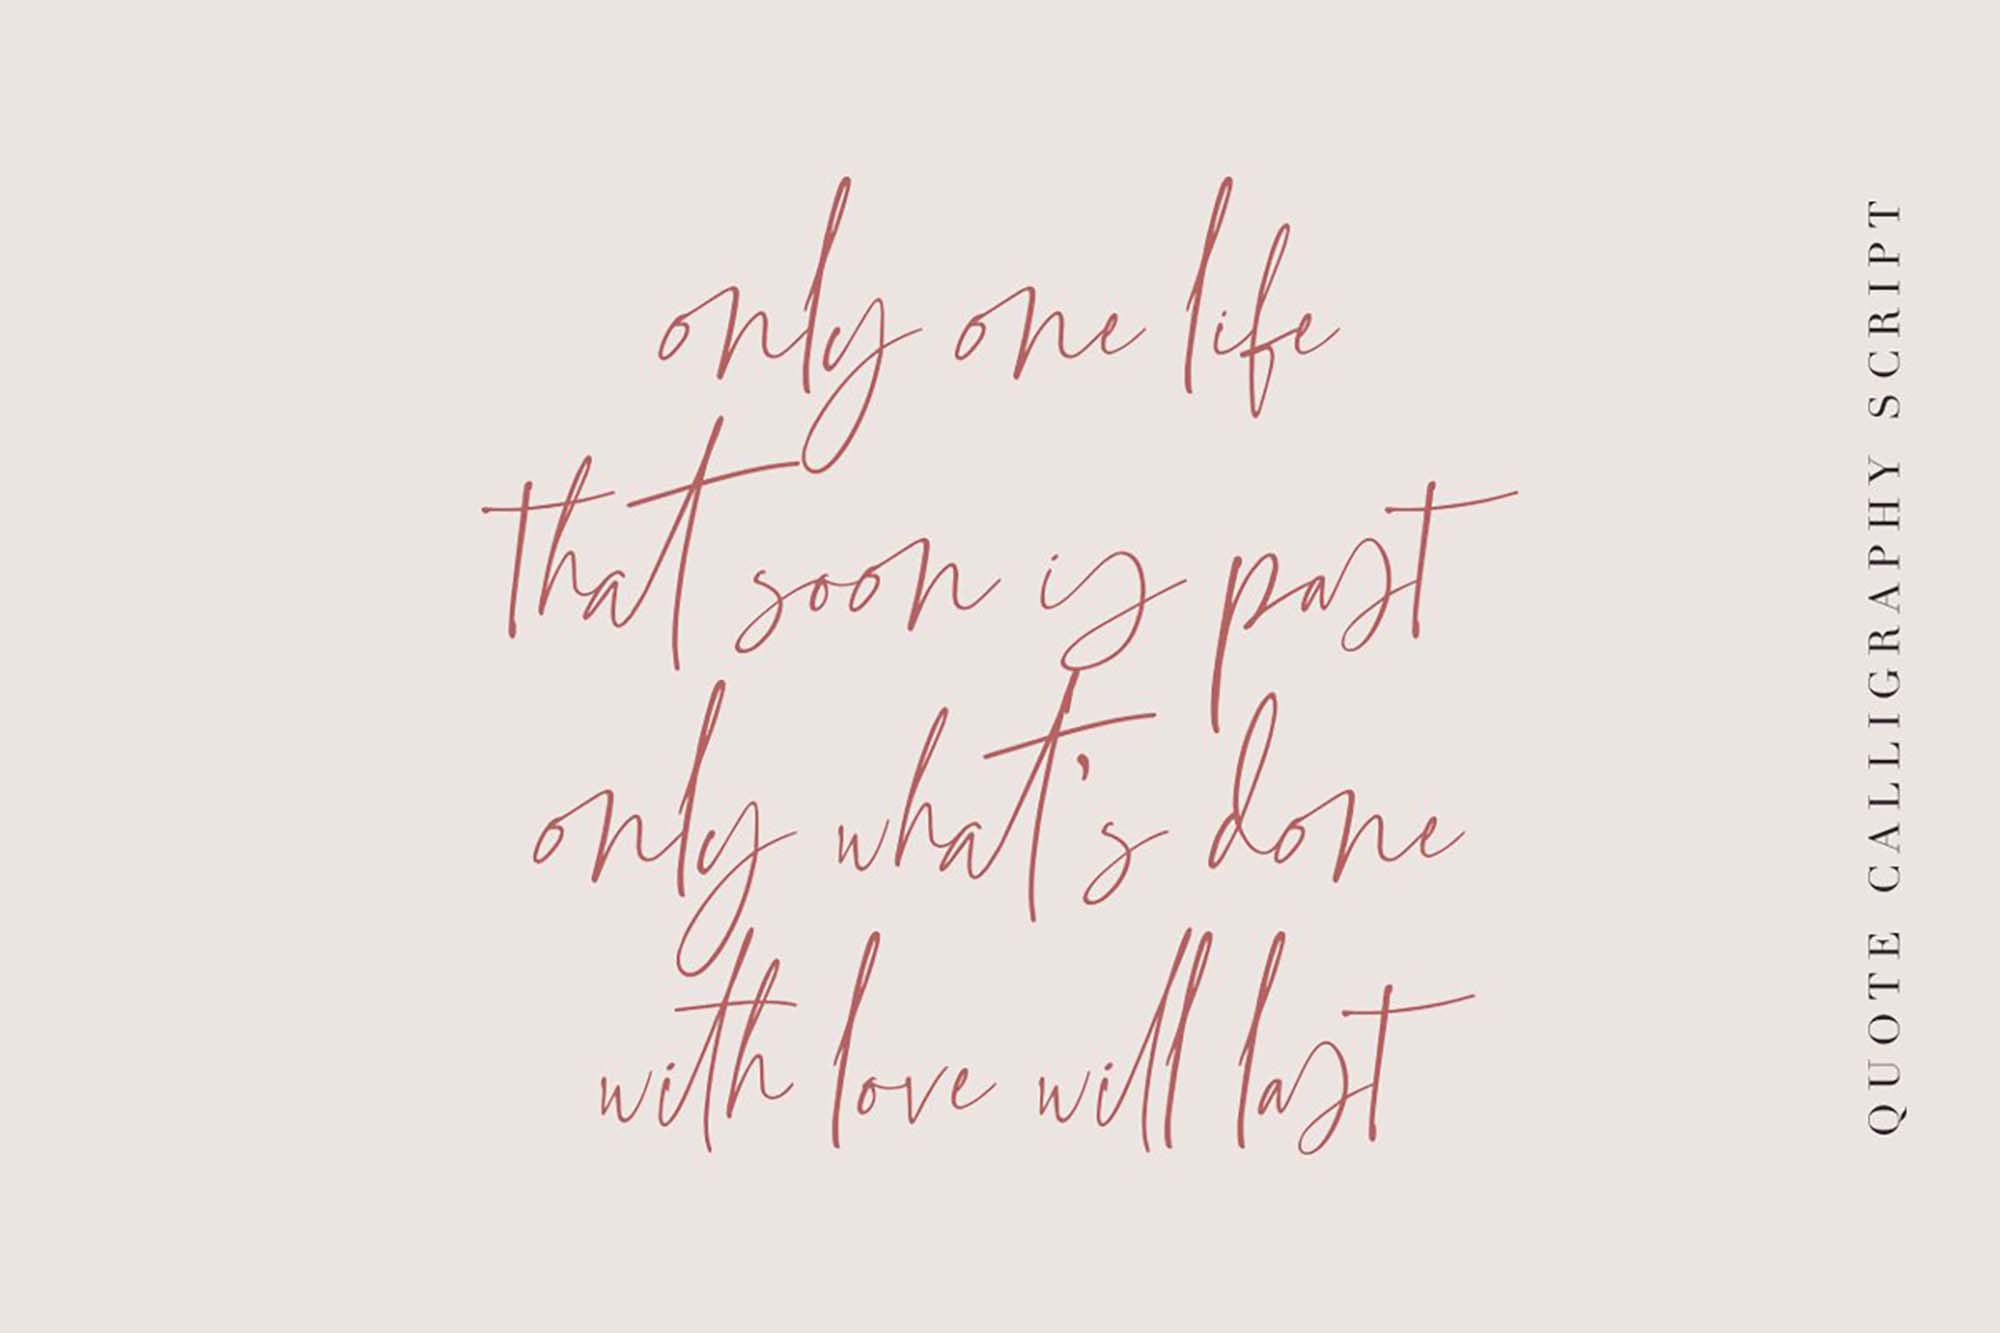 only one life
that soon is past
only what's done
with love will last
QUOTE CALLIGRAPHY SCRIPT